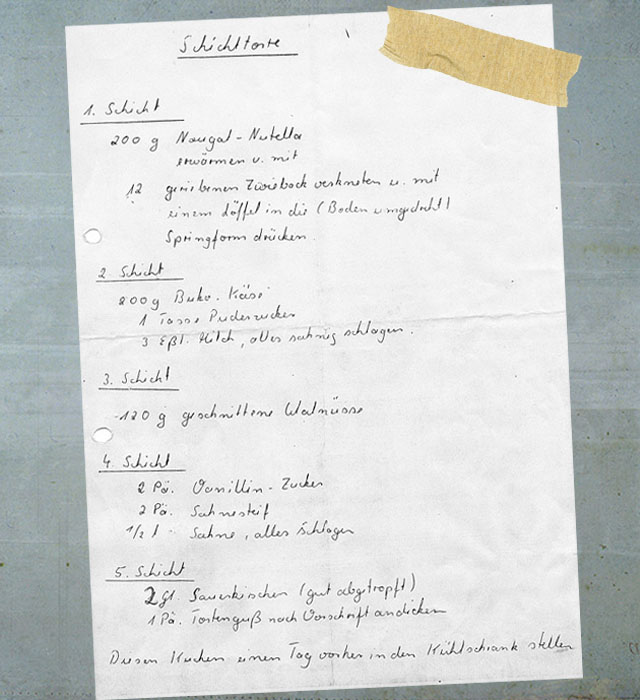 Schichttorte
1. Schicht
200 g Nougat-Nutella
erwärmen u. mit
12 geriebenen Zwieback verkneten u. mit
einem Löffel in die (Boden umgedreht)
Springform drücken.
2. Schicht
200g Buko. Käse
1 Tasse Puderzucker
3 Eßl. Milch, alles sahnig schlagen.
3. Schicht
120 g geschnittene Walnüsse
4. Schicht
2 Pä. Vanillin-Zucker
2 Pä. Sahnesteif
1/2 l Sahne, alles schlagen
5. Schicht
2 Gl. Sauerkirschen (gut abgetropft)
1 Pä. Tortenguß nach Vorschrift andicken
Diesen Kuchen einen Tag vorher in den Kühlschrank stellen